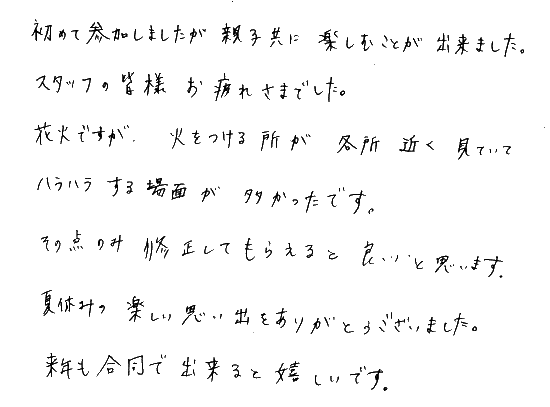 初めて参加しましたが 親子共に 楽しむことが 出来ました。
スタッフの皆様 お疲れさまでした。
花火ですが、 火をつける所が 各所 近く 見ていて
ハラハラ する場面が 多かったです。
その点のみ 修正してもらえると 良いと思います。
夏休みの 楽しい思い出をありがとうございました。
来年も合同で出来ると嬉しいです。